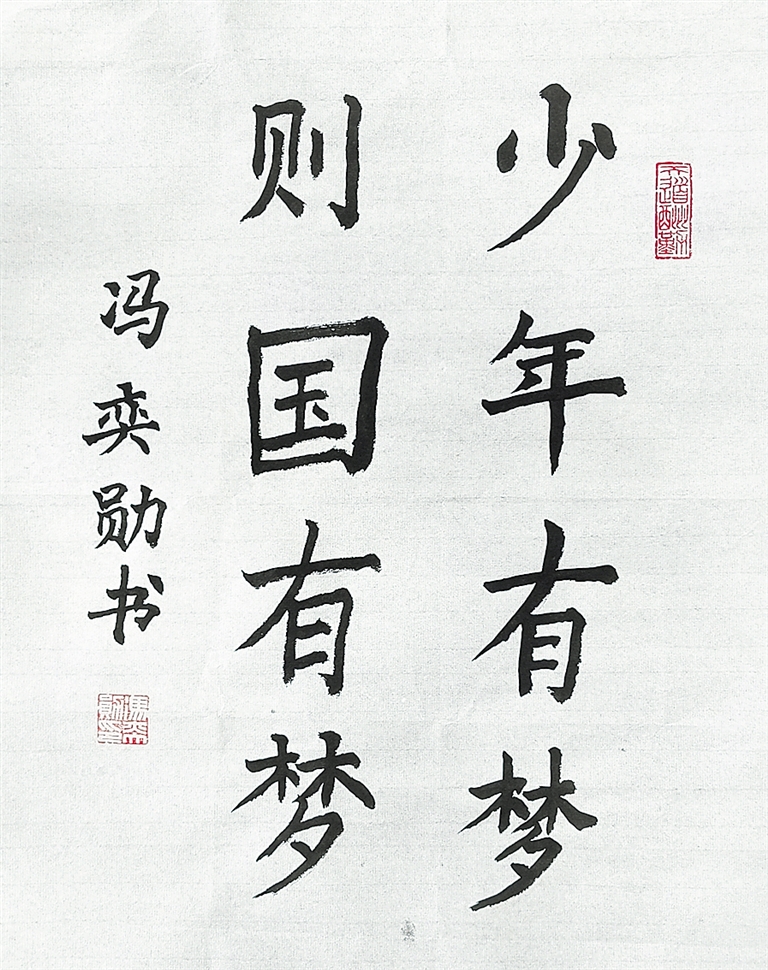 少年有梦
则国有梦
冯奕勋书